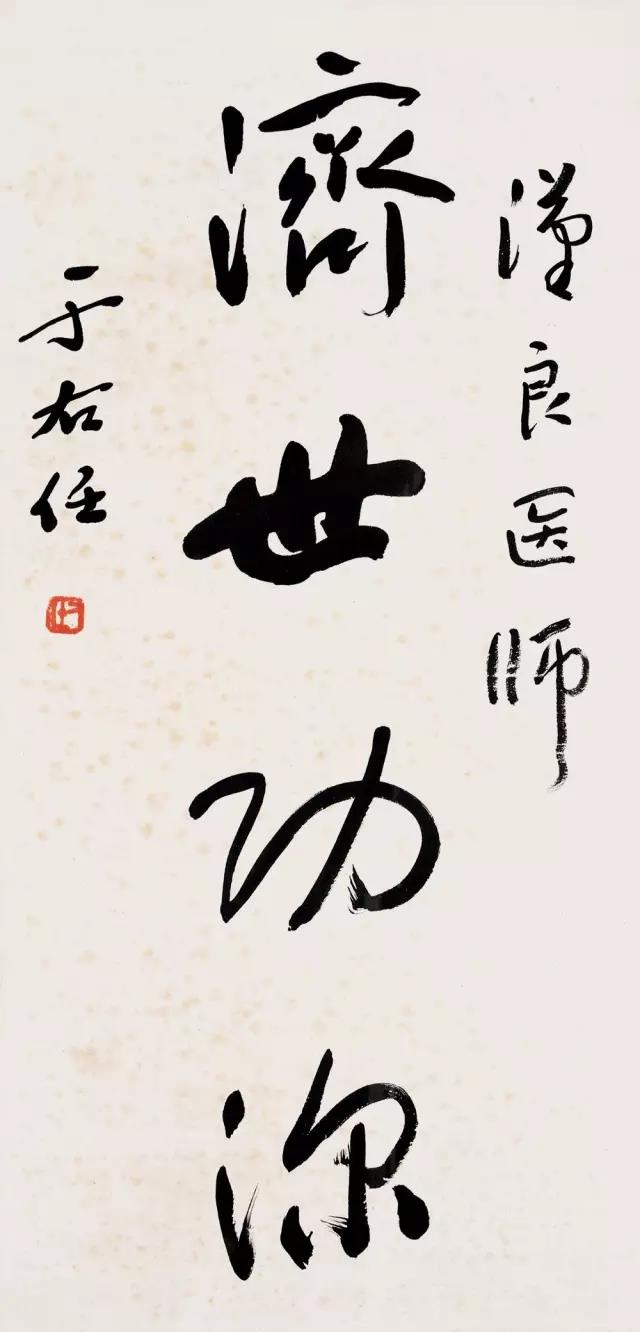 漢良医師
濟世功深
于右任